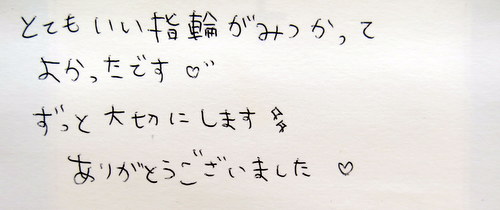 とてもいい指輪がみつかって
よかったです♡
ずっと大切にします
ありがとうございました ♡